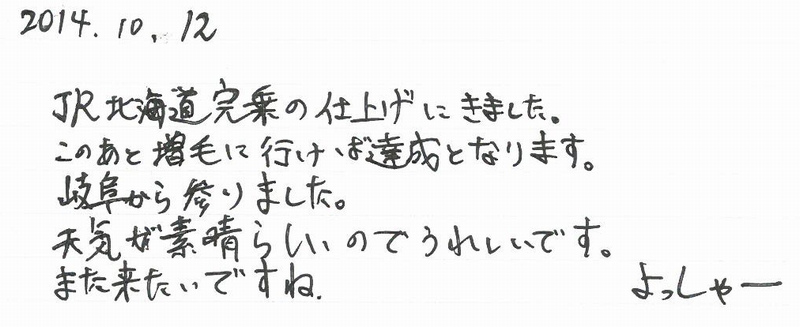 2014.10.12
JR北海道完乗の仕上げにきました。
このあと増毛に行けば達成となります。
岐阜から参りました。
天気が素晴らしいのでうれしいです。
また来たいですね.
よっしゃー